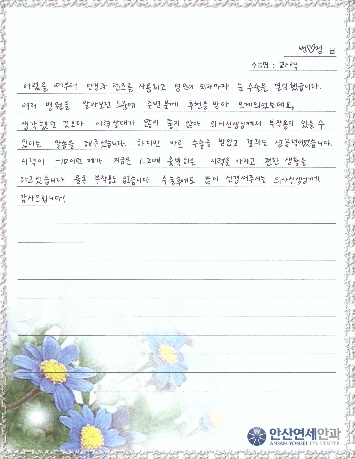 변♡정 님
수술명 :
어렸을 때부터 안경과 렌즈를 사용하고 눈 수술을 결심했습니다.
여러 병원을 알아보던 도중에 주변분께 추천을 받아 오게되었는데요,
생각했던 것보다 시력상태가 많이 좋지 않아 의사선생님께서 부작용이 있을 수
있다는 말씀을 해주셨습니다. 하지만 바로 수술을 받았고 결과는 성공적이었습니다.
시력이 -10이던 제가 지금은 1.2에 시력을 가지고 편한 생활을
하고있습니다. 물론 부작용도 없습니다. 수술후에도 많이 신경써주시는 의사선생님께
감사드립니다!
안산연세안과
ANSAN YONSEI EYE CENTER